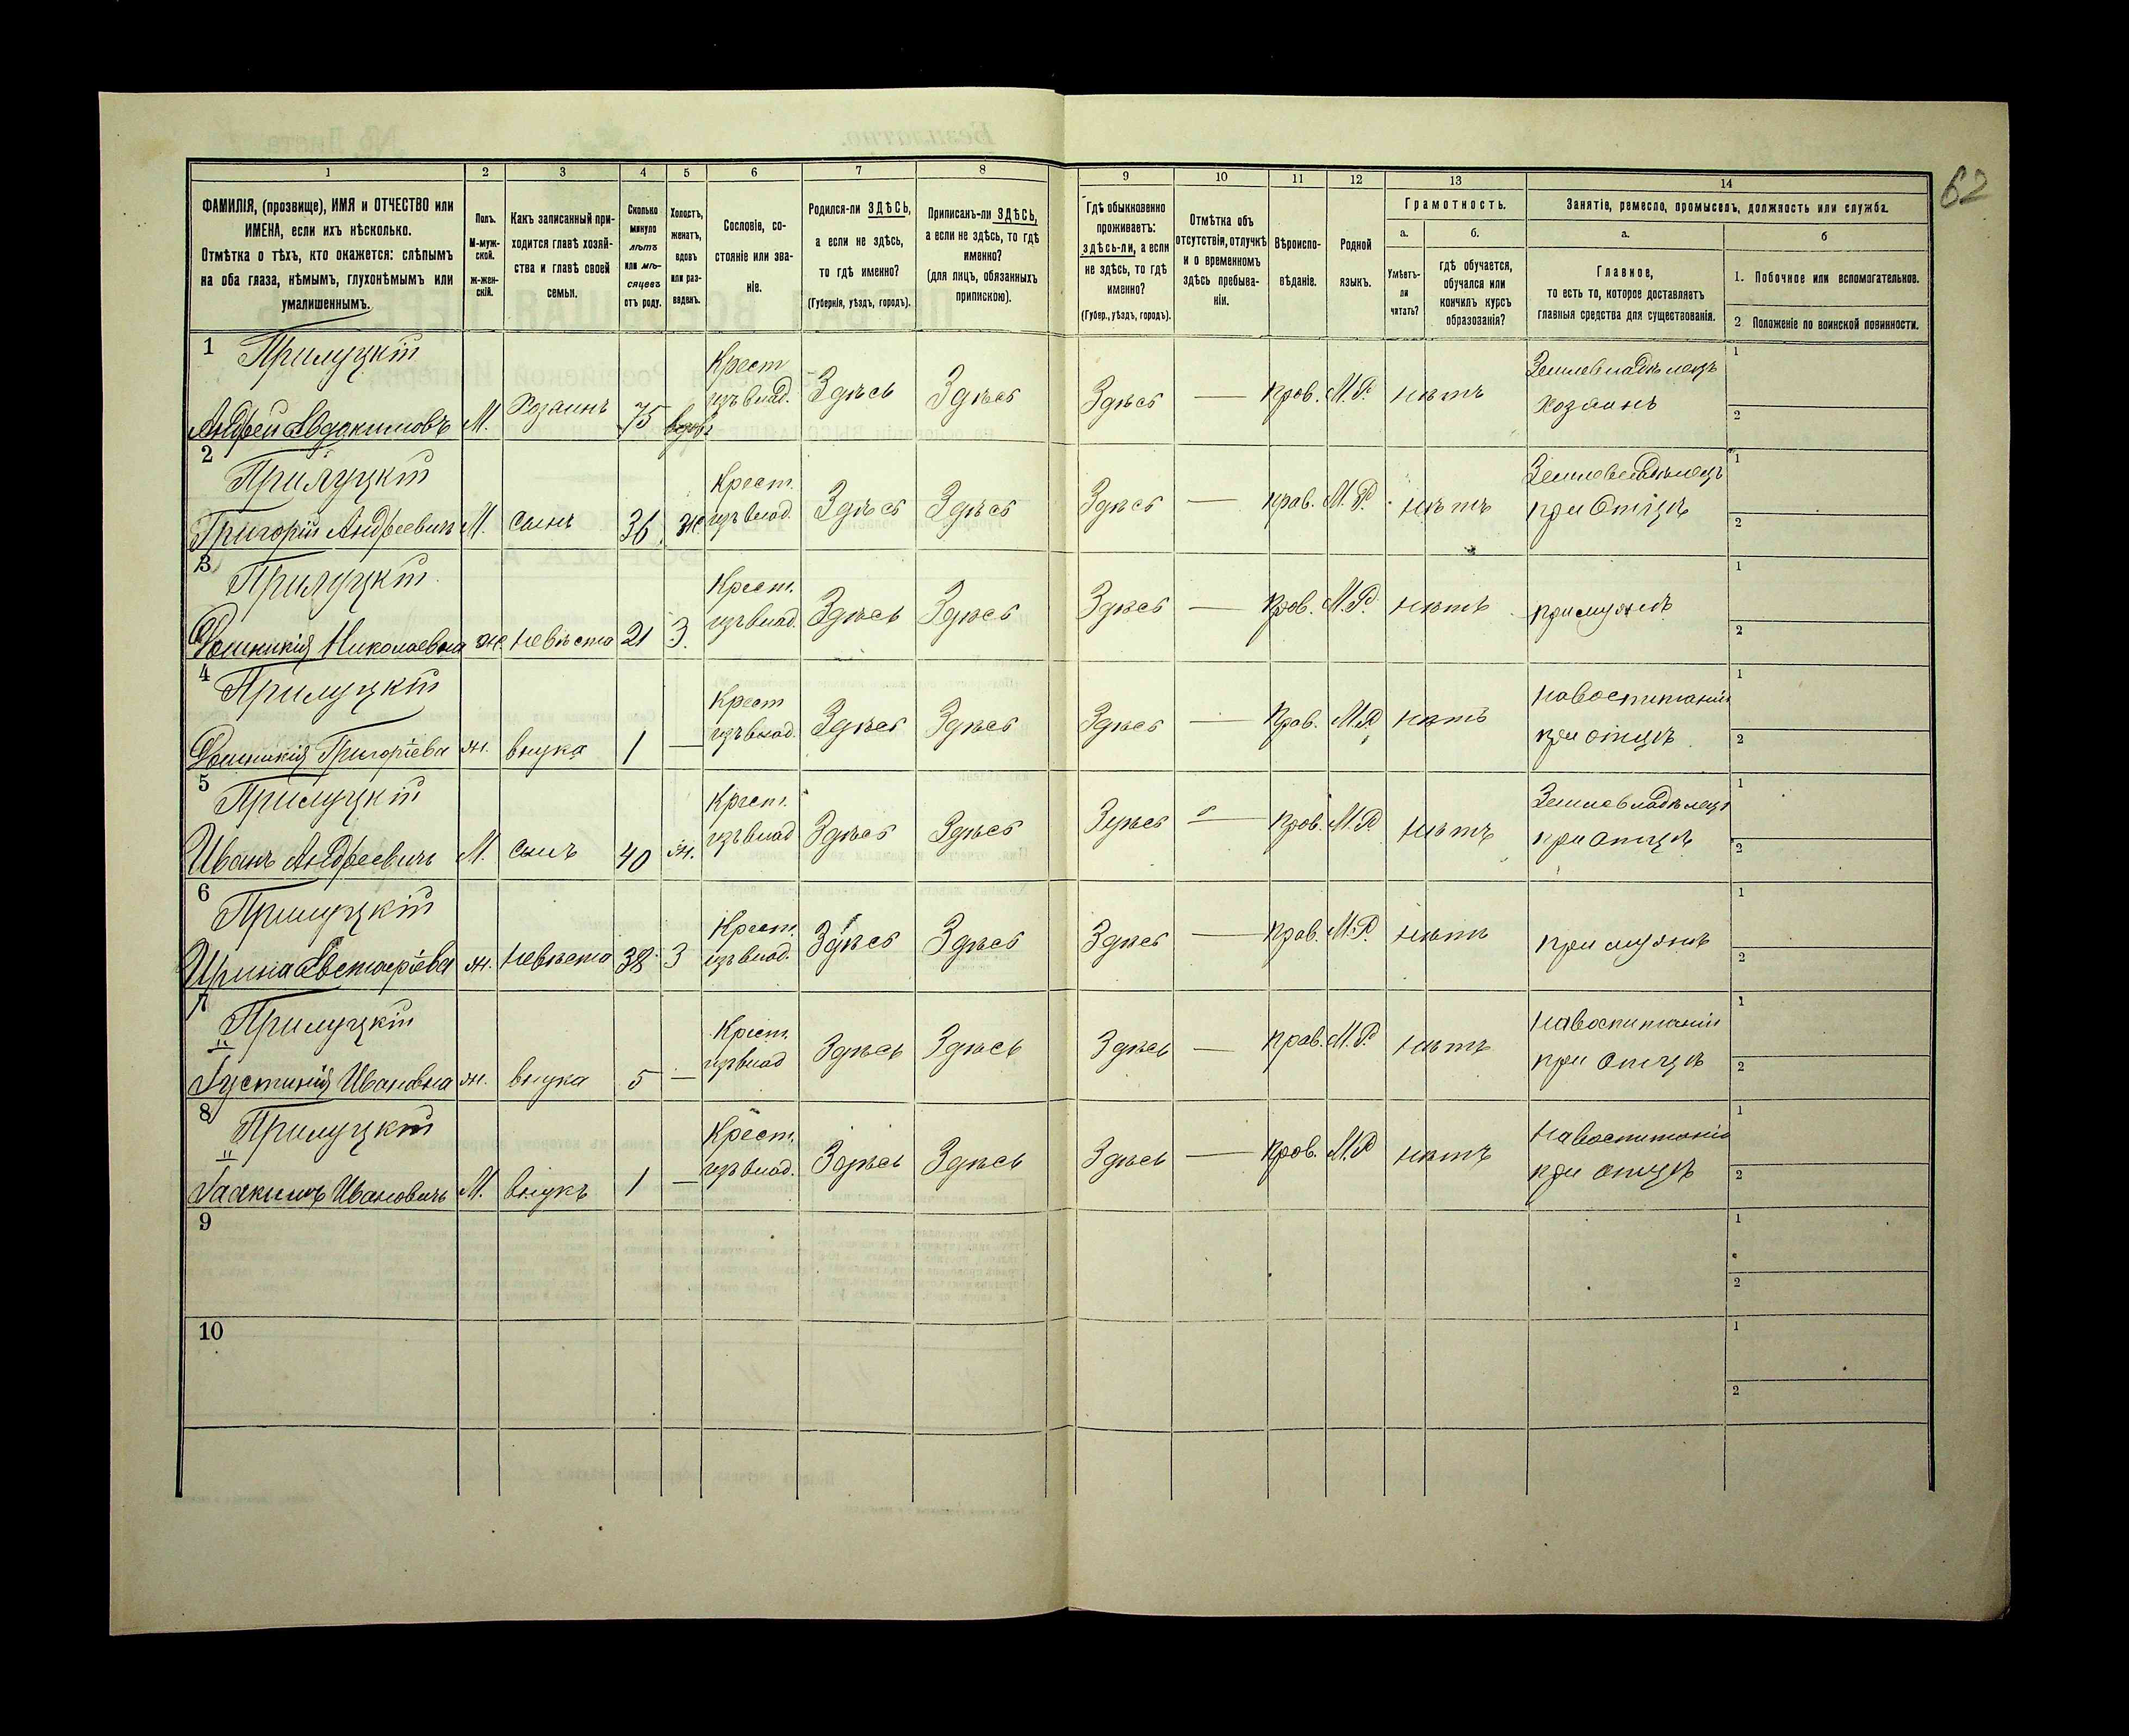 62
1 2 3 4 5 6 7 8 9 10 11 12 13 14
ФАМИЛІЯ, (прозвище), ИМЯ и ОТЧЕСТВО или
ИМЕНА, если ихъ нѣсколько.
Отмѣтка о тѣхъ, кто окажется: слѣпымъ
на оба глаза, нѣмымъ, глухонѣмымъ или
умалишеннымъ.
Полъ.
М-муж-
ской.
ж-жен-
скій.
Какъ записанный при-
ходится главѣ хозяй-
ства и главѣ своей
семьи.
Сколько
минуло
лѣтъ
или мѣ-
сяцевъ
отъ роду.
Холостъ,
женатъ,
вдовъ
или раз-
веденъ.
Сословіе, со-
стояніе или зва-
ніе.
Родился-ли ЗДѢСЬ,
а если не здѣсь,
то гдѣ именно?
(Губернія, уѣздъ, городъ).
Приписанъ-ли ЗДѢСЬ,
а если не здѣсь, то гдѣ
именно?
(для лицъ, обязанныхъ
припискою).
Гдѣ обыкновенно
проживаетъ:
здѣсь-ли, а если
не здѣсь, то гдѣ
именно?
(Губер., уѣздъ, городъ).
Отмѣтка объ
отсутствіи, отлучкѣ
и о временномъ
здѣсь пребыва-
ніи.
Вѣроиспо-
вѣданіе.
Родной
языкъ.
Грамотность.
а.
Умѣетъ-
ли
читать?
б.
гдѣ обучается,
обучался или
кончилъ курсъ
образованія?
Занятіе, ремесло, промыселъ, должность или служба.
а.
Главное,
то есть то, которое доставляетъ
главныя средства для существованія.
б
1. Побочное или вспомогательное.
2 Положеніе по воинской повинности.
1 Прилуцкій
Андрей Авдокимовъ М. Хозаинъ 75 вдовъ
Крест
изъ влад. Здѣсь Здѣсь Здѣсь — Прав. М.Р. нѣтъ
Землевладѣлецъ
хозяинъ
1
2
2 Прилуцкій
Григорій Андреевичъ М. сынъ 36 ж.
Крест.
изъ влад. Здѣсь Здѣсь Здѣсь — прав. М.Р. нѣтъ
Землевладѣлецъ
при Отцѣ
1
2
3 Прилуцкій
Домникія Николаевна ж. невѣста 21 З.
Крест.
изъ влад. Здѣсь Здѣсь Здѣсь — Прав. М.Р. нѣтъ
при мужѣ
1
2
4 Прилуцкій
Домникія Григоріева ж. внука 1 —
Крест
изъ влад. Здѣсь Здѣсь Здѣсь — Прав. М.Р. нѣтъ
навоспитаніи
при отцѣ
1
2
5 Прилуцкій
Иванъ Андреевичъ М. сынъ 40 ж.
Крест.
изъ влад Здѣсь Здѣсь Здѣсь — Прав. М.Р. нѣтъ
Землевладѣлецъ
при отцѣ
1
2
6 Прилуцкій
Ирина ж. невѣста 38 З
Крест.
изъ влад. Здѣсь Здѣсь Здѣсь — Прав. М.Р. нѣтъ
при мужѣ
1
2
7 Прилуцкій
Іустинія Ивановна ж. внука 5 —
Крест.
изъ влад Здѣсь Здѣсь Здѣсь — прав. М.Р. нѣтъ
навоспитаніи
при отцѣ
1
2
8 Прилуцкій
Іаакимъ Ивановичъ М. внукъ 1 —
Крест.
изъ влад. Здѣсь Здѣсь Здѣсь — Прав. М.Р нѣтъ
навоспитаніи
при отцѣ
1
2
9
1
2
10
1
2